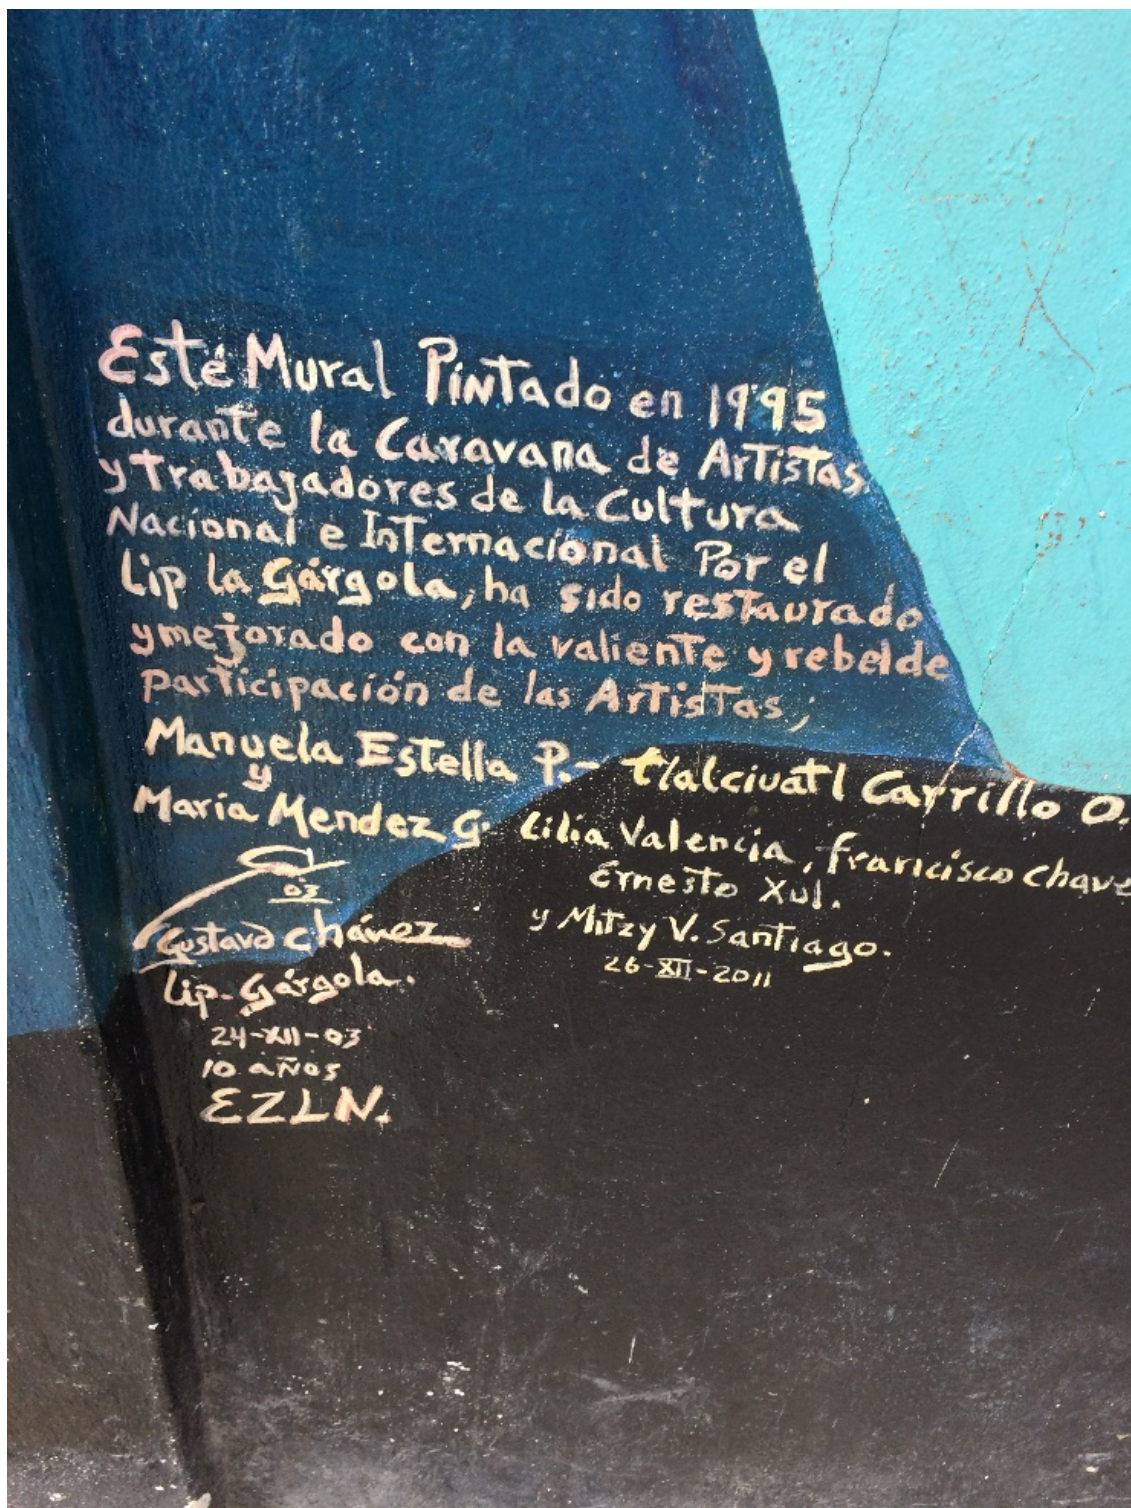 Esté Mural Pintado en 1995
durante la Caravana de Artistas
y trabajadores de la Cultura
Nacional e Internacional Por el
Lip la Gárgola, ha sido restaurado
y mejorado con la valiente y rebelde
participación de las Artistas;
Manuela Estella P.- tlalciuatl Carrillo O.
y
María Mendez G. Lilia Valencia, francisco chave
Ernesto Xul.
y Mitzy V. Santiago.
26-XII-2011
03
Gustavo chávez
Lip-Gárgola.
24-XII-03
10 años
EZLN.